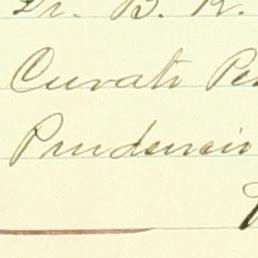 Dr. B. R.
Curati Pe
Prudencio